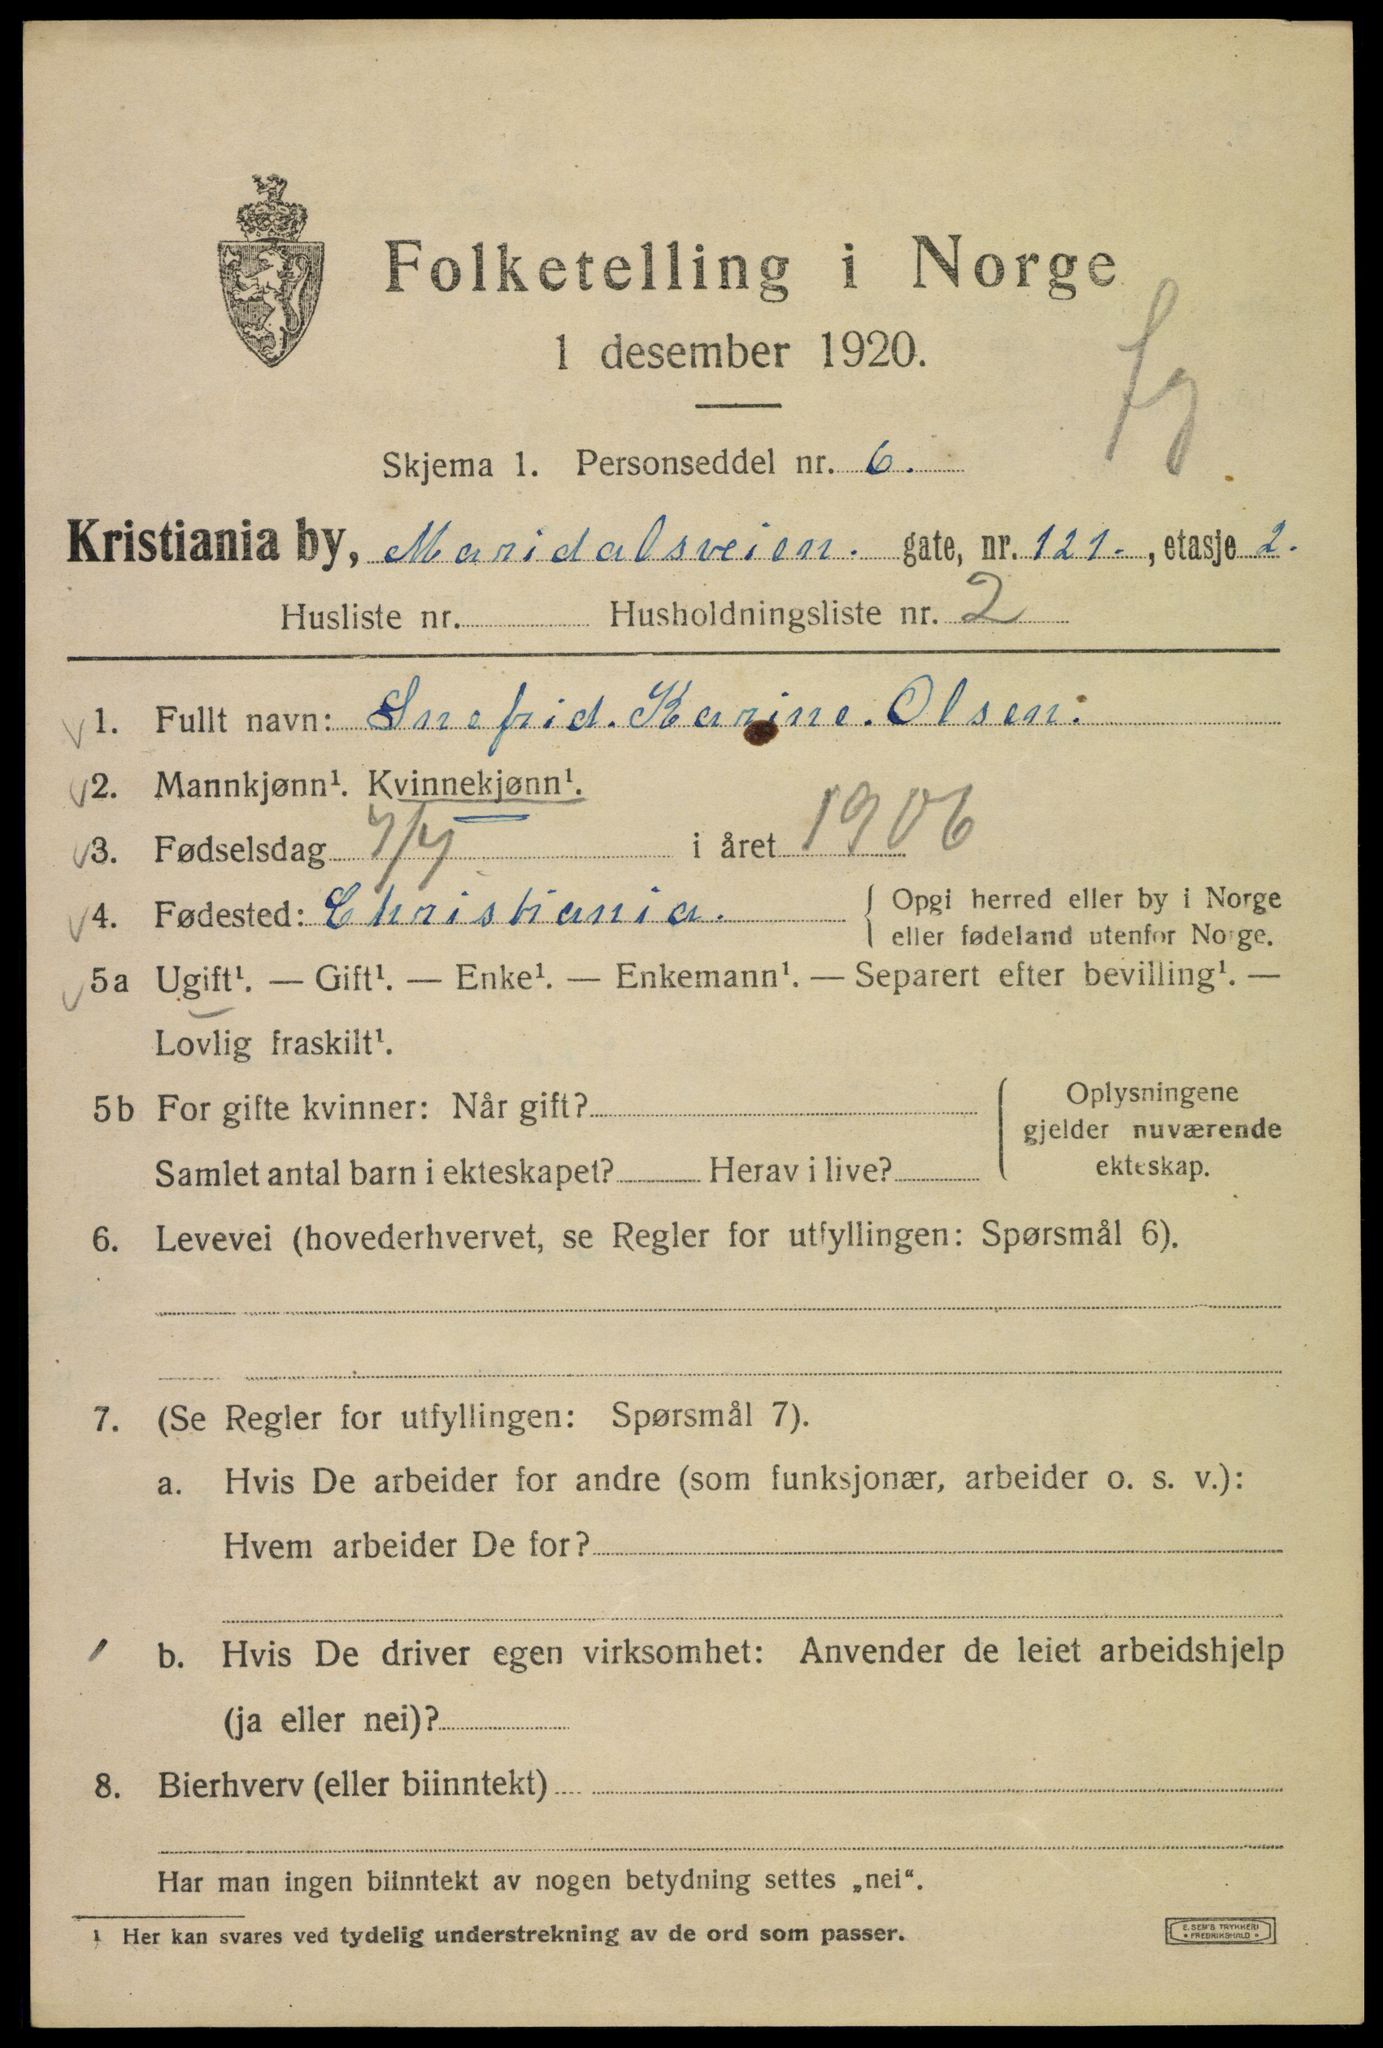 Folketelling i Norge
1 desember 1920.
Skjema 1. Personseddel nr. 6.
Kristiania by, Maridalsveien. gate, nr. 121., etasje 2.
Husliste nr. Husholdningsliste nr. 2
1. Fullt navn: Snefrid. Karine. Olsen.
2. Mannkjønn¹. Kvinnekjønn¹.
3. Fødselsdag 7/4 i året 1906
4. Fødested: Christiania. Opgi herred eller by i Norge
eller fødeland utenfor Norge.
5a Ugift¹. — Gift¹. — Enke¹. — Enkemann¹. — Separert efter bevilling¹. —
Lovlig fraskilt¹.
5b For gifte kvinner: Når gift? Oplysningene
gjelder nuværende
Samlet antal barn i ekteskapet? Herav i live? ekteskap.
6. Levevei (hovederhvervet, se Regler for utfyllingen: Spørsmål 6).
7. (Se Regler for utfyllingen: Spørsmål 7).
a. Hvis De arbeider for andre (som funksjonær, arbeider o. s. v.):
Hvem arbeider De for?
b. Hvis De driver egen virksomhet: Anvender de leiet arbeidshjelp
(ja eller nei)?
8. Bierhverv (eller biinntekt)
Har man ingen biinntekt av nogen betydning settes „nei“.
1 Her kan svares ved tydelig understrekning av de ord som passer.
E. SEM'S TRYKKERI
FREDRIKSHALD